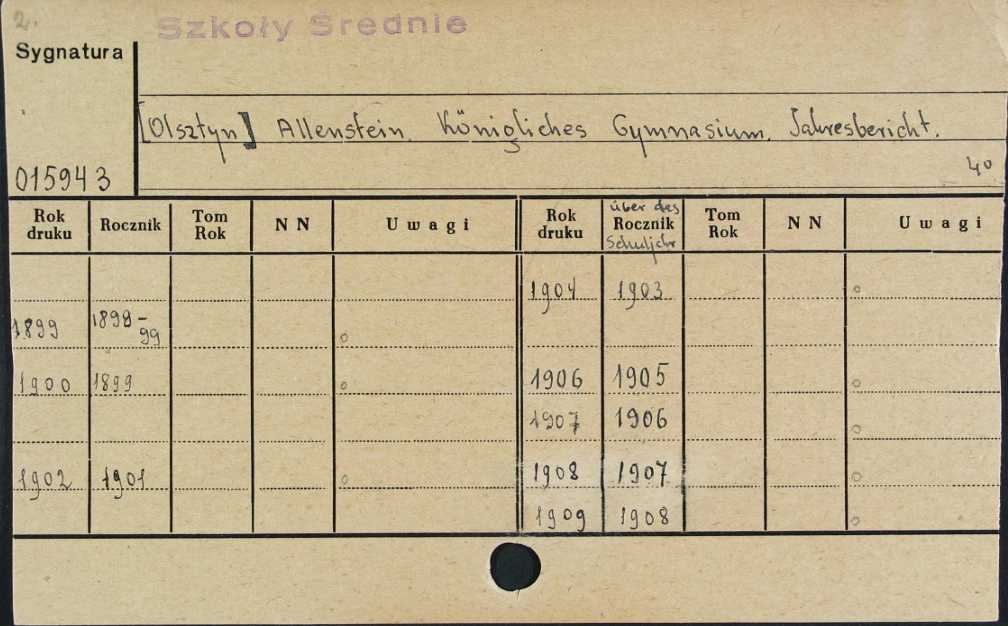 2.
Szkoły Średnie
Sygnatura
[Olsztyn] Allenstein. Königliches Gymnasium. Jahresbericht.
4°
015943
Rok druku Rocznik Tom Rok NN Uwagi Rok druku über das Rocznik Schuljahr Tom Rok NN Uwagi
1904 1903 o
1899 1898-99 o
1900 1899 o 1906 1905 o
1907 1906 o
1902 1901 o 1908 1907 o
1909 1908 o